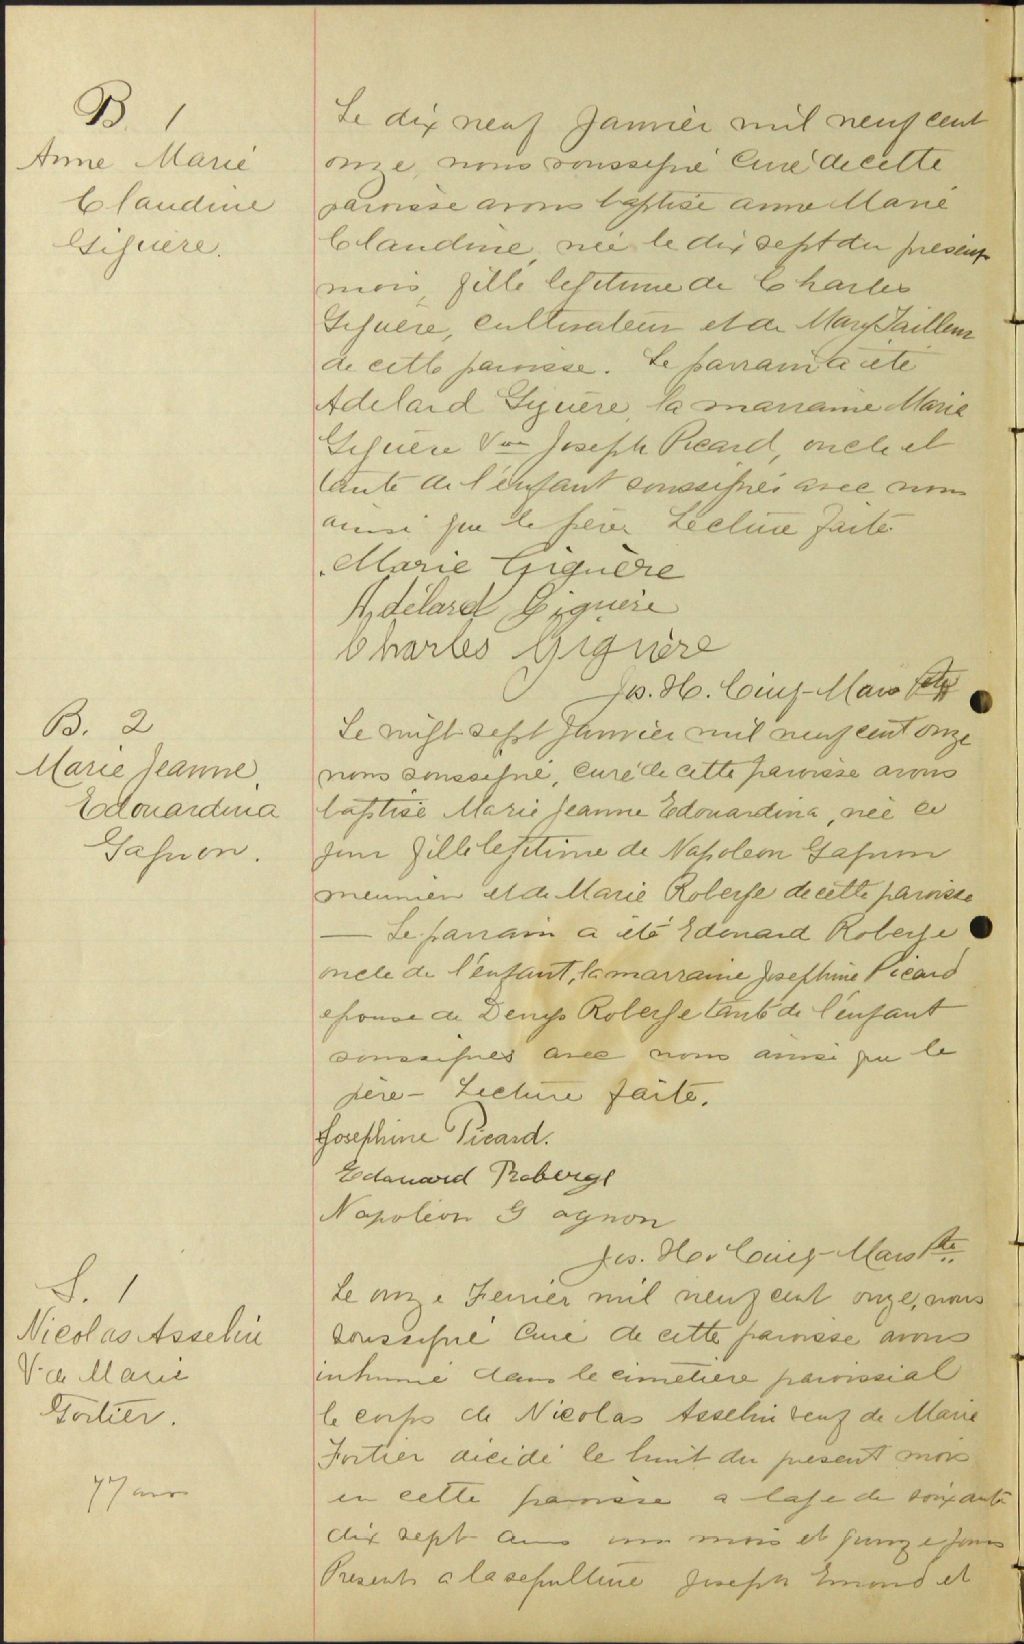 B. 1
Anne Marie
Claudine
Giguère.
Le dix neuf Janvier mil neuf cent
onze, nous soussigné Curé de cette
paroisse avons baptisé anne Marie
Claudine, née le dix sept du présent
mois, fille legitime de Charles
Giguère, cultivateur et de Mary Tailleur
de cette paroisse. Le parrain a été
Adelard Giguère, la marraine Marie
Giguère Vve Joseph Picard, oncle et
tante de l'enfant soussignés avec nous
ainsi que le père. Lecture faite.
Marie Giguère
Adélard Giguère
Charles Giguère
Jos. H. Cinq-Mars Ptre
B. 2
Marie Jeanne
Edouardina
Gagnon.
Le vingt-sept Janvier mil neuf cent onze
nous soussigné, curé de cette paroisse avons
baptisé Marie Jeanne Edouardina, née ce
jour fille legitime de Napoleon Gagnon
meunier et de Marie Roberge de cette paroisse
— Le parrain a été Edouard Roberge
oncle de l'enfant, la marraine Josephine Picard
epouse de Denys Roberge tante de l'enfant
soussignés avec nous ainsi que le
père - Lecture faite.
Josephine Picard.
Edouard Roberge
Napoléon Gagnon
Jos. H. Cinq-Mars Ptre.
S. 1
Nicolas Asselin
V. de Marie
Fortier.
77 ans
Le onze Fevrier mil neuf cent onze, nous
soussigné Curé de cette paroisse avons
inhumé dans le cimetière paroissial
le corps de Nicolas Asselin veuf de Marie
Fortier décidé le huit du present mois
en cette paroisse a lage de soixante
dix sept ans un mois et quinze jours
Presents a la sepulture Joseph Emond et